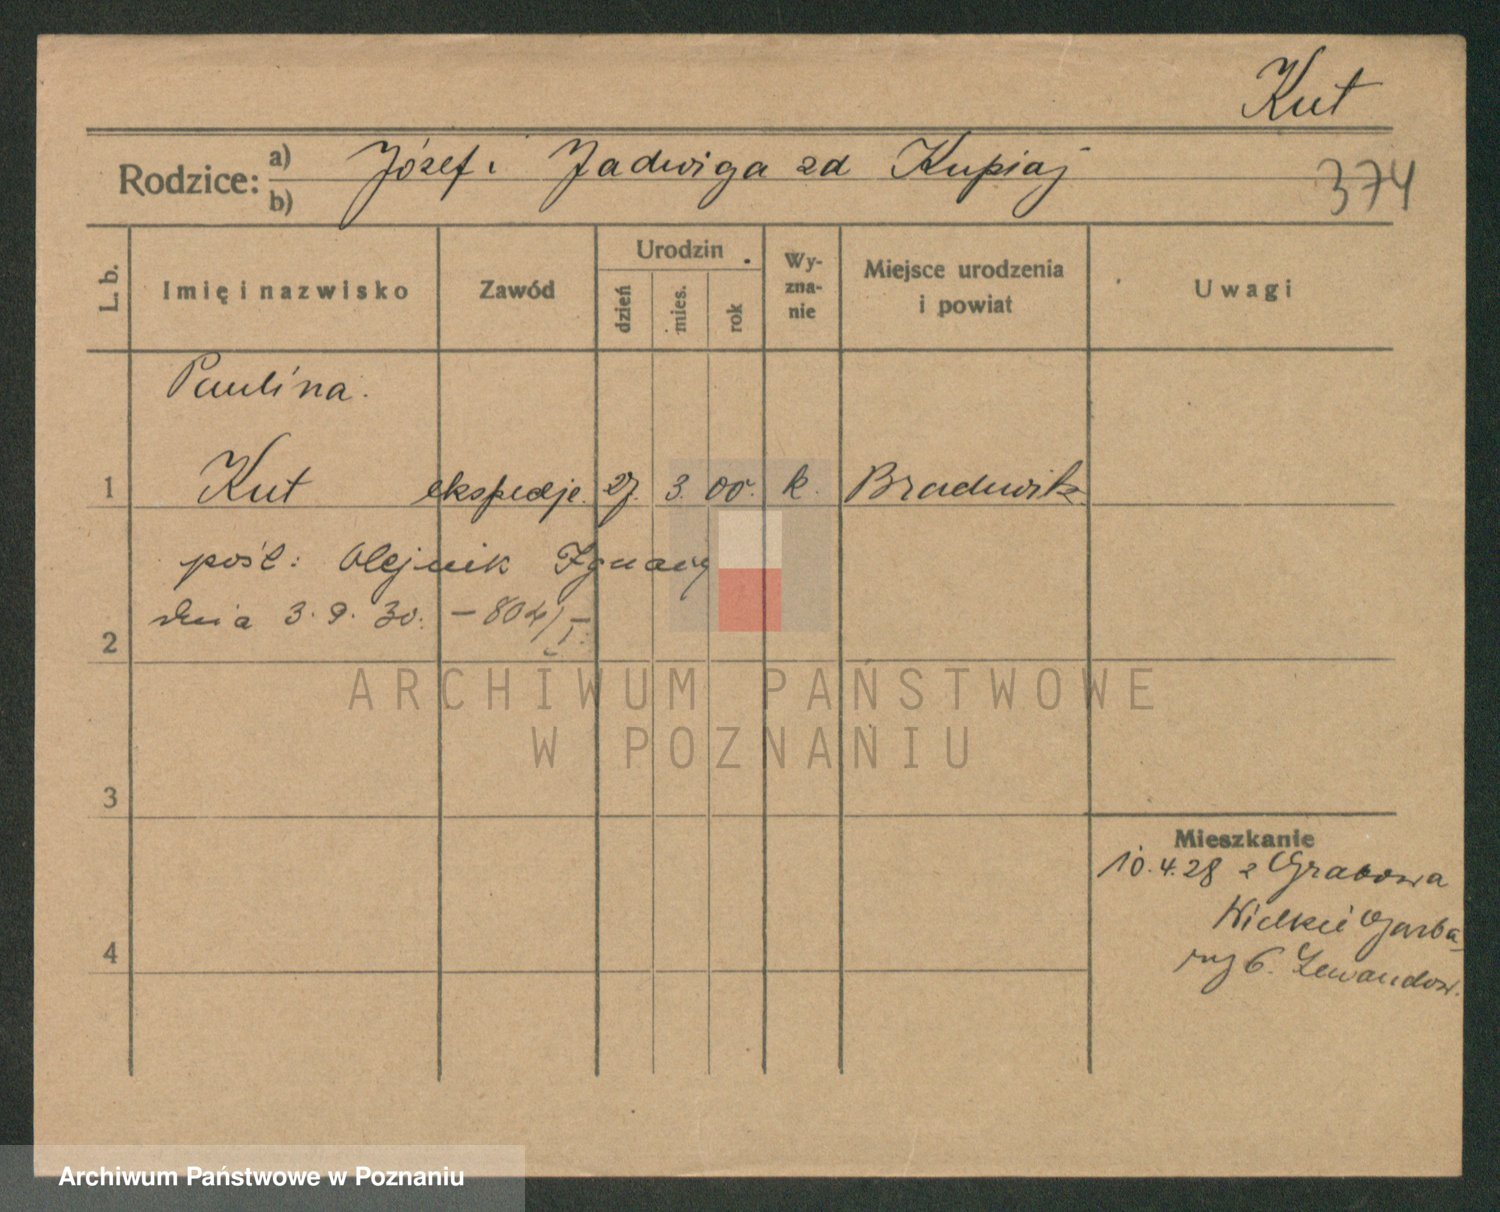 Kut
Rodzice: a) Józef i Jadwiga zd Kupiaj
b)
374
L. b. Imię i nazwisko Zawód Urodzin dzień mies. rok Wy-zna-nie Miejsce urodzenia i powiat Uwagi
Paulina.
1 Kut ekspedje. 27. 3. 00. k. Bradwitz
pośl: Olejnik Ignacy
2 dnia 3.9.30. – 804/I.
3
Mieszkanie
10.4.28 z Grabowa
Wielkie Garba-
4 ry 6. Lewandow.
ARCHIWUM PAŃSTWOWE
W POZNANIU
Archiwum Państwowe w Poznaniu